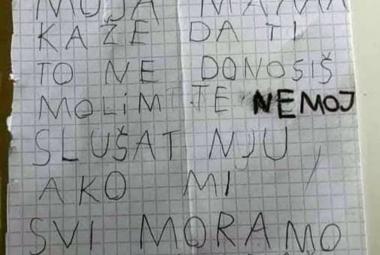 MOJA MAMA
KAŽE DA TI
TO NE DONOSIŠ
MOLIM TE NEMOJ
SLUŠAT NJU,
AKO MI
SVI MORAMO